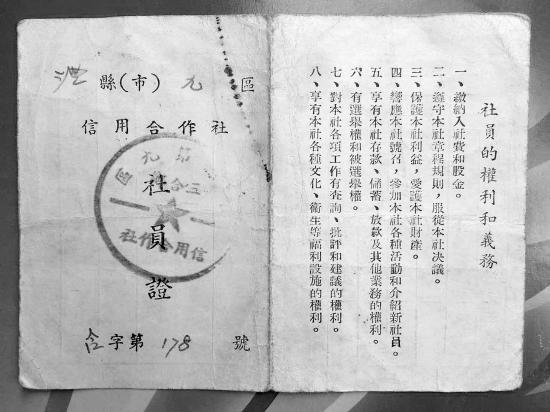 縣(市) 九 區
信用合作社
社員證
字第 178 號
第九區
三合
信用合作社
社員的權利和義務
一、繳納入社費和股金。
二、遵守本社章程規則，服從本社決議。
三、保護本社利益，愛護本社財產。
四、響應本社號召，參加本社各種活動和介紹新社員。
五、享有本社存款、儲蓄、放款及其他業務的權利。
六、有選舉權和被選舉權。
七、對本社各項工作有查詢、批評和建議的權利。
八、享有本社各種文化、衛生等福利設施的權利。